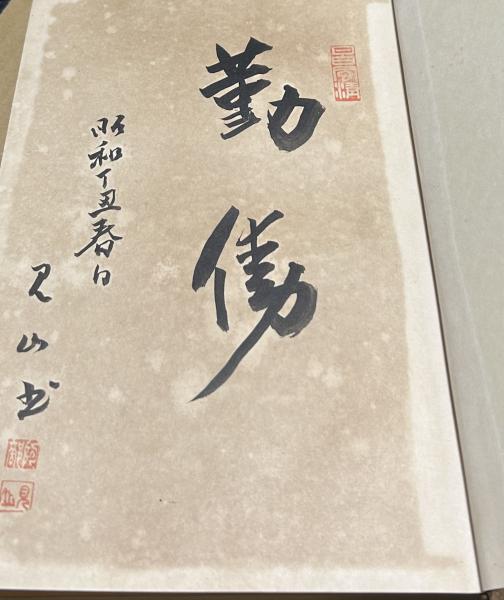 勤働
昭和丁丑春日
見山書